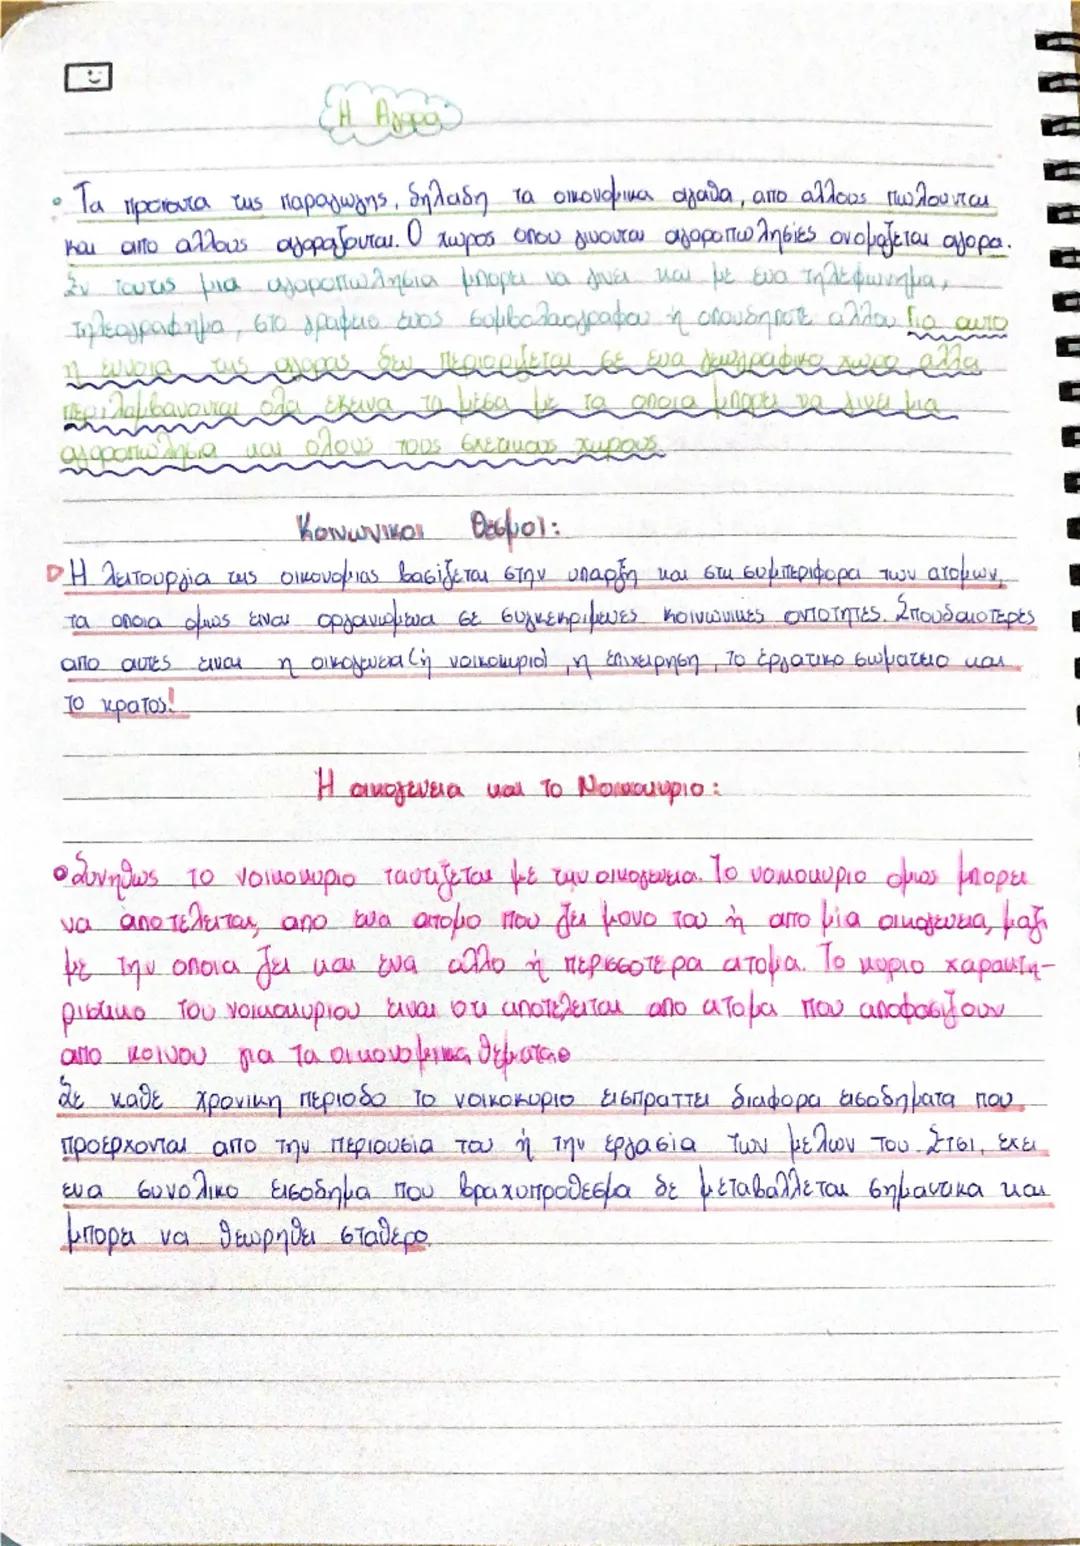 Η Αγορα
Τα προϊοντα της παραγωγης, δηλαδη τα οικονομικα αγαθα, απο αλλους πωλουνται
και απο αλλους αγοραζονται. Ο χωρος οπου γινονται αγοροπωλησίες ονομαζεται αγορα.
Εν τουτις μια αγοροπωλησια μπορει να γινει και με ενα τηλεφωνημα,
τηλεγραφημα, στο γραφειο ενος συμβολαιογραφου ή οπουδηποτε αλλου Για αυτο
η εννοια της αγορας δεν περιοριζεται σε ενα γεωγραφικο χωρο αλλα
περιλαμβανονται ολα εκεινα τα μεσα με τα οποια μπορει να γινει μια
αγοροπωλησια και ολους τους σχετικους χωρους
Κοινωνικοι Θεσμοι:
Η λειτουργία της οικονομιας βασίζεται στην υπαρξη και στη συμπεριφορα των ατομων,
τα οποια ομως ειναι οργανωμενα σε συγκεκριμενες κοινωνικες οντοτητες. Σπουδαιοτερες
απο αυτες ειναι η οικογενεια (ή νοικοκυριο), η επιχειρηση, το εργατικο σωματειο και
το κρατος!
Η οικογενεια και το Νοικοκυριο:
Συνηθως το νοικοκυριο ταυτιζεται με την οικογενεια. Το νοικοκυριο ομως μπορει
να αποτελειται, απο ενα ατομο που ζει μονο του ή απο μία οικογενεια, μαζι
με την οποια ζει και ενα αλλο ή περισσοτερα ατομα. Το κυριο χαρακτη-
ριστικο του νοικοκυριου ειναι οτι αποτελειται απο ατομα που αποφασιζουν
απο κοινου για τα οικονομικα θεματα.
Σε καθε χρονικη περιοδο το νοικοκυριο εισπραττει διαφορα εισοδηματα που
προερχονται απο την περιουσια του ή την εργασία των μελων του. Ετσι, εχει
ενα συνολικο εισοδημα που βραχυπροθεσμα δε μεταβαλλεται σημαντικα και
μπορει να θεωρηθει σταθερο.